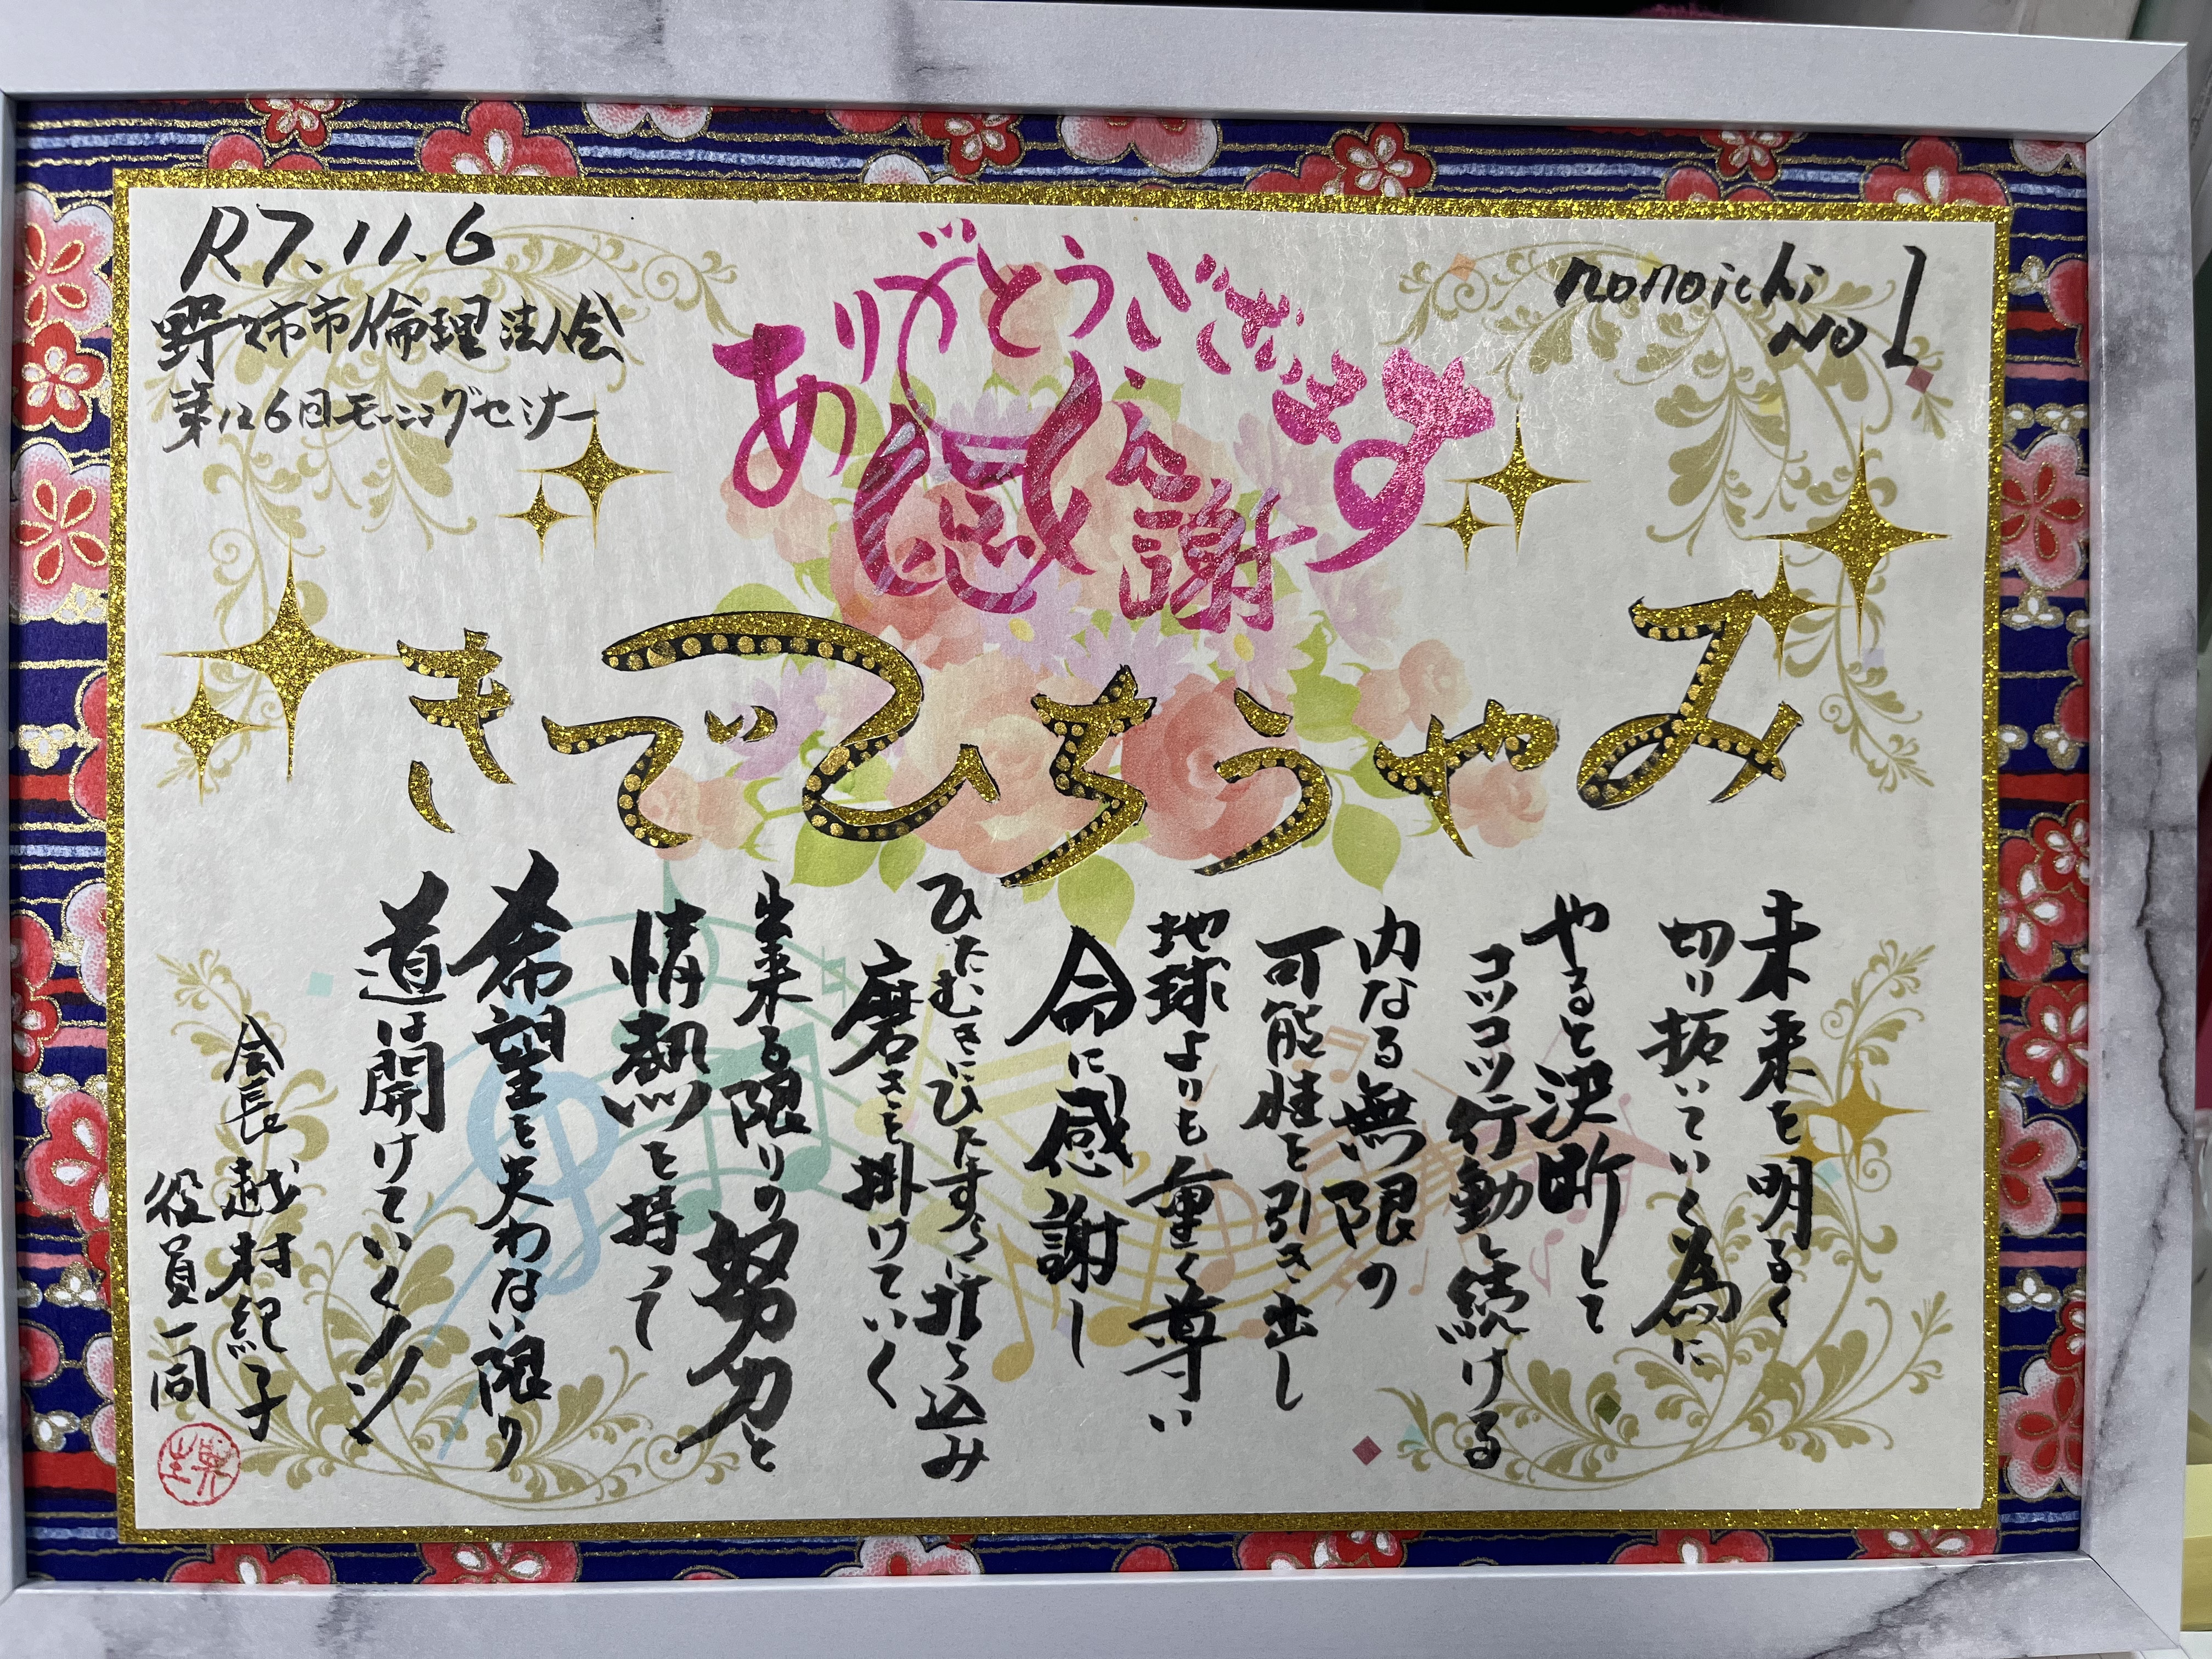 R7.11.6
野々市市倫理法人会
第126回モーニングセミナー
ありがとうございます
感謝
nonoichi
No 1
みやうちひでき
未来を明るく
切り拓いていく為に
やると決断して
コツコツ行動し続ける
内なる無限の
可能性を引き出し
地球よりも重く尊い
命に感謝し
ひたむきにひたすらに打ち込み
磨きを掛けていく
出来る限りの努力と
情熱を持って
希望を失わない限り
道は開けていく!!
会長 越村紀子
役員一同